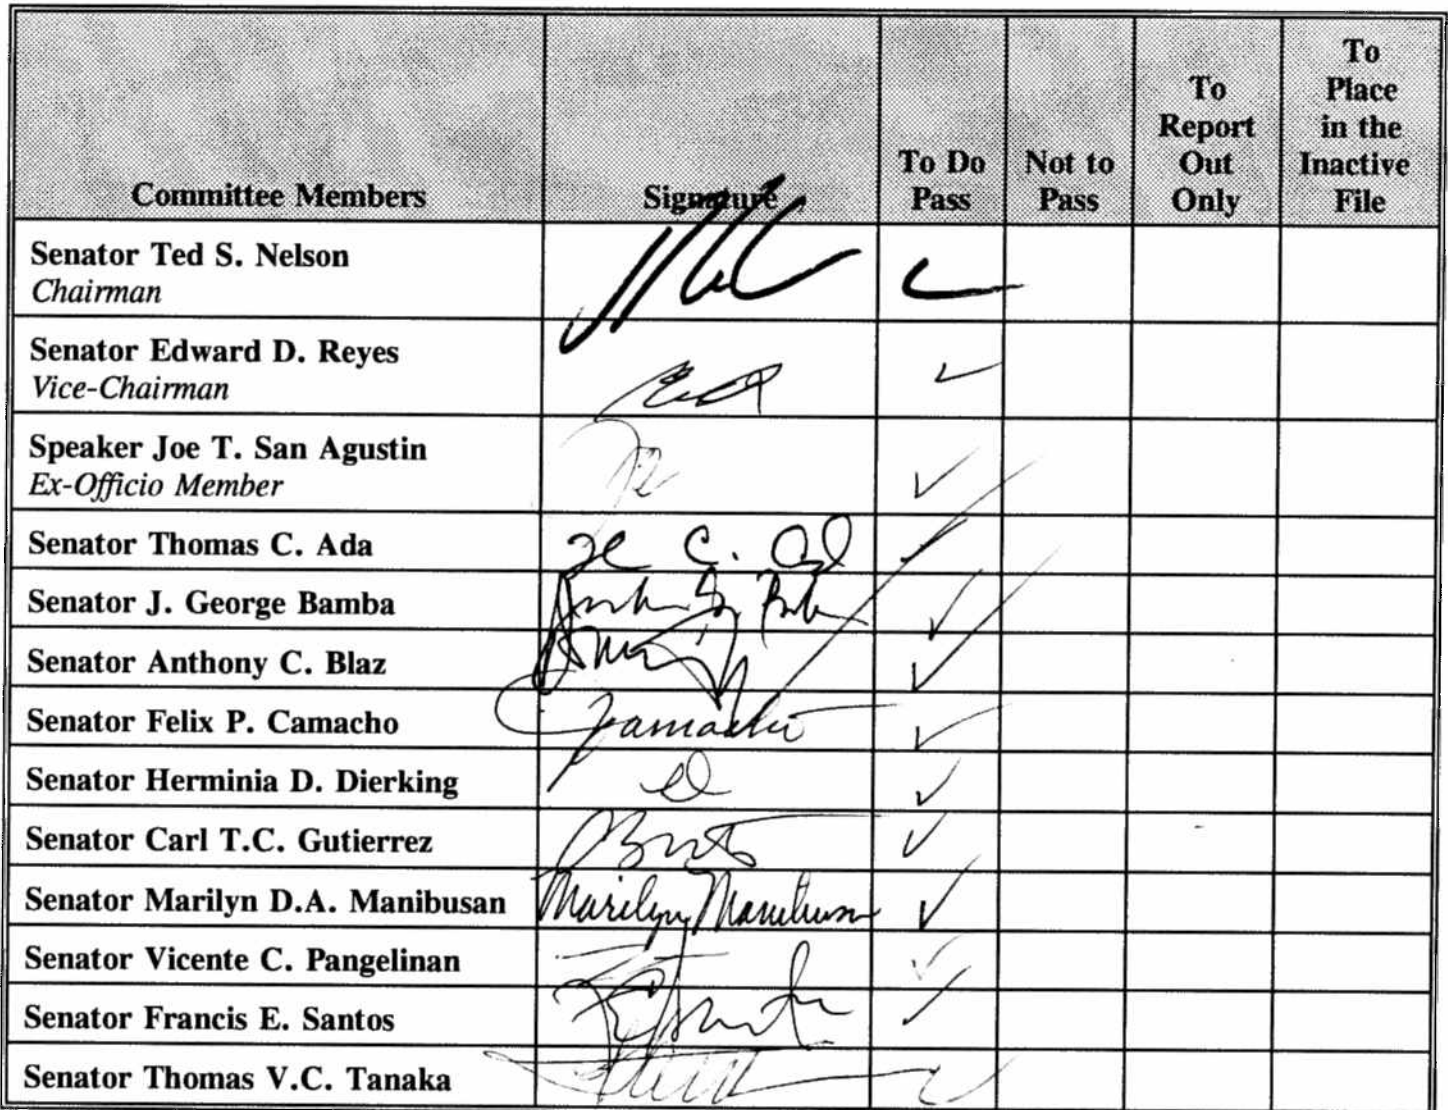 Committee Members
Signature
To Do
Pass
Not to
Pass
To
Report
Out
Only
To
Place
in the
Inactive
File
Senator Ted S. Nelson
Chairman
Senator Edward D. Reyes
Vice-Chairman
Speaker Joe T. San Agustin
Ex-Officio Member
Senator Thomas C. Ada
Senator J. George Bamba
Senator Anthony C. Blaz
Senator Felix P. Camacho
Camacho
Senator Herminia D. Dierking
Senator Carl T.C. Gutierrez
Senator Marilyn D.A. Manibusan
Marilyn Manibusan
Senator Vicente C. Pangelinan
Senator Francis E. Santos
Senator Thomas V.C. Tanaka